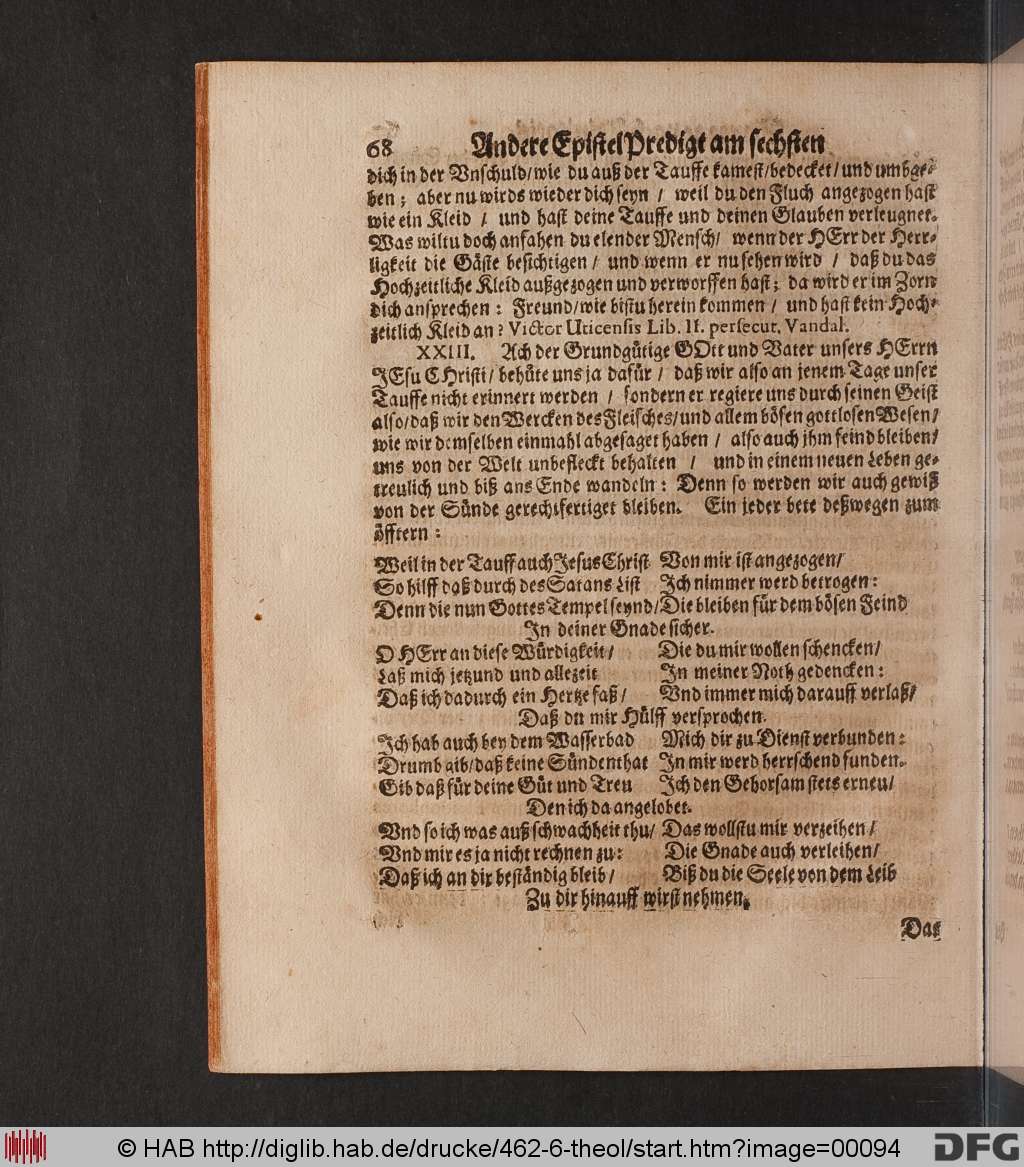 68 Andere Epistel Predigt am sechsten
dich in der Vnschuld/wie du auß der Tauffe kamest/bedecket/und umbge-
ben; aber nu wirds wieder dich seyn / weil du den Fluch angezogen hast
wie ein Kleid / und hast deine Tauffe und deinen Glauben verleugnet.
Was wiltu doch anfahen du elender Mensch/ wenn der HErr der Herr-
ligkeit die Gäste besichtigen/ und wenn er nu sehen wird / daß du das
Hochzeitliche Kleid außgezogen und verworffen hast; da wird er im Zorn
dich ansprechen: Freund/wie bistu herein kommen / und hast kein Hoch-
zeitlich Kleid an? Victor Uticensis Lib. II. persecut. Vandal.
XXIII. Ach der Grundgütige GOtt und Vater unsers HErrn
JEsu CHristi/ behüte uns ja dafür / daß wir also an jenem Tage unser
Tauffe nicht erinnert werden / sondern er regiere uns durch seinen Geist
also/daß wir den Wercken des Fleisches/und allem bösen gottlosen Wesen/
wie wir demselben einmahl abgesaget haben / also auch jhm feind bleiben/
uns von der Welt unbefleckt behalten / und in einem neuen Leben ge-
treulich und biß ans Ende wandeln: Denn so werden wir auch gewiß
von der Sünde gerechtfertiget bleiben. Ein jeder bete deßwegen zum
öfftern:
Weil in der Tauff auch Jesus Christ Von mir ist angezogen/
So hilff daß durch des Satans List Ich nimmer werd betrogen:
Denn die nun Gottes Tempel seynd/Die bleiben für dem bösen Feind
In deiner Gnade sicher.
O HErr an diese Würdigkeit/ Die du mir wollen schencken/
Laß mich jetzund und allezeit In meiner Noth gedencken:
Daß ich dadurch ein Hertze faß/ Vnd immer mich darauff verlaß/
Daß du mir Hülff versprochen.
Ich hab auch bey dem Wasserbad Mich dir zu Dienst verbunden:
Drumb gib/daß keine Sündenthat In mir werd herrschend funden.
Gib daß für deine Güt und Treu Ich den Gehorsam stets erneu/
Den ich da angelobet.
Vnd so ich was auß schwachheit thu/ Das wollstu mir verzeihen/
Vnd mir es ja nicht rechnen zu: Die Gnade auch verleihen/
Daß ich an dir beständig bleib/ Biß du die Seele von dem Leib
Zu dir hinauff wirst nehmen.
Das
© HAB http://diglib.hab.de/drucke/462-6-theol/start.htm?image=00094 DFG